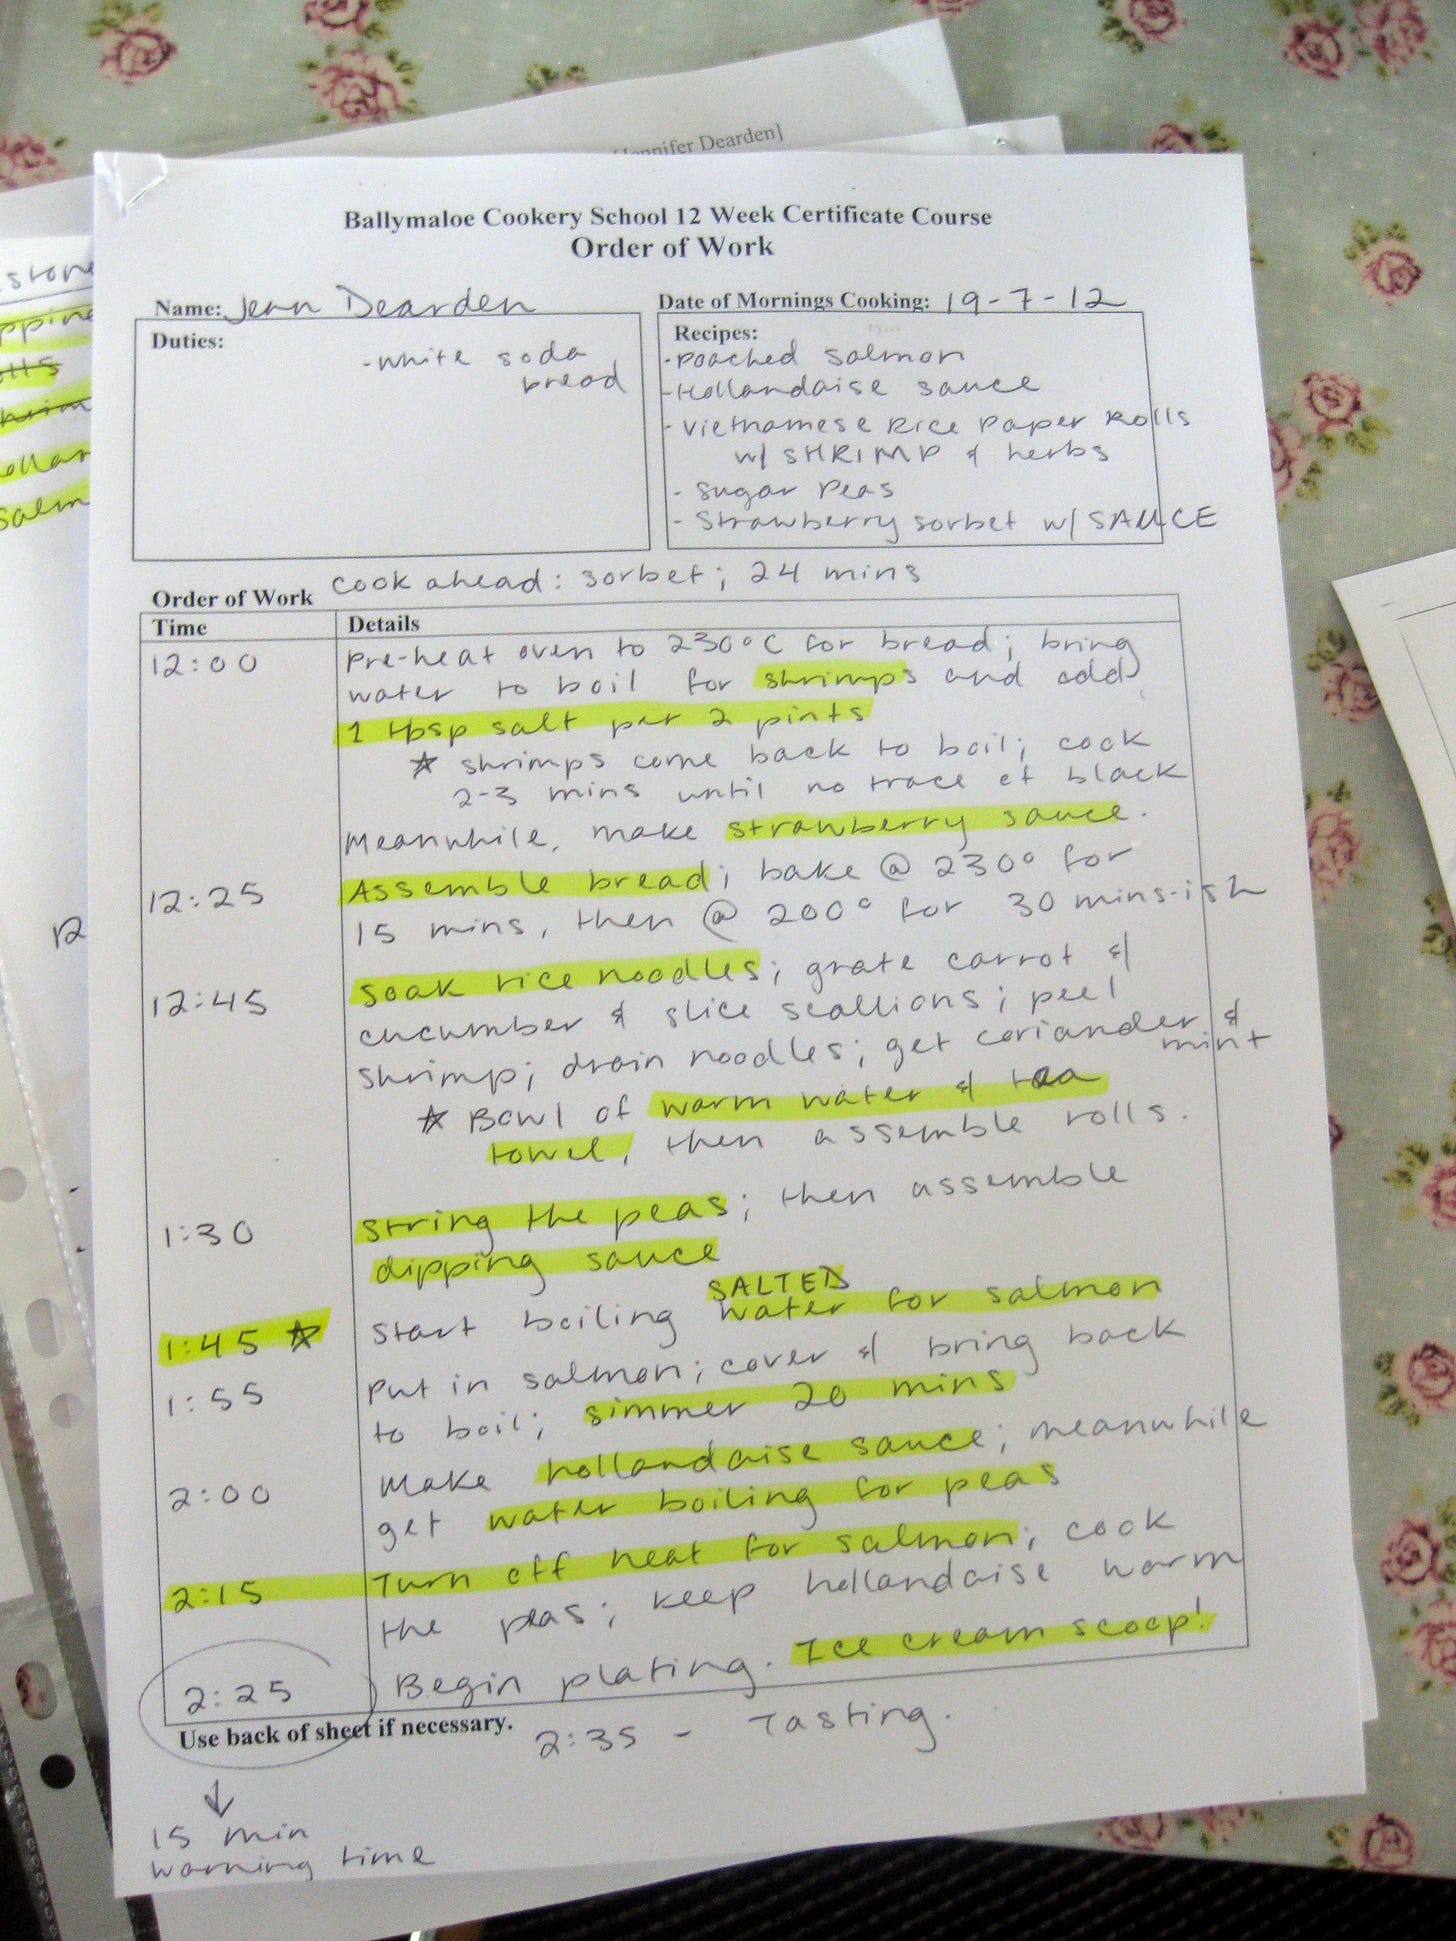 Jennifer Dearden]
Ballymaloe Cookery School 12 Week Certificate Course
Order of Work
Name: Jenn Dearden
Date of Mornings Cooking: 19-7-12
Duties:
- white soda
bread
Recipes:
- poached salmon
- Hollandaise sauce
- Vietnamese Rice Paper Rolls
w/ SHRIMP & herbs
- sugar peas
- Strawberry sorbet w/ SAUCE
Order of Work cook ahead: sorbet; 24 mins
Time Details
12:00 Pre-heat oven to 230°C for bread; bring
water to boil for shrimps and add
1 tbsp salt per 2 pints
☆ shrimps come back to boil; cook
2-3 mins until no trace of black
Meanwhile, make strawberry sauce.
12:25 Assemble bread; bake @ 230° for
15 mins, then @ 200° for 30 mins-ish
12:45 Soak rice noodles; grate carrot &
cucumber & slice scallions; peel
shrimp; drain noodles; get coriander &
mint
☆ Bowl of warm water & tea
towel, then assemble rolls.
1:30 String the peas; then assemble
dipping sauce
SALTED
1:45 ☆ Start boiling water for salmon
1:55 Put in salmon; cover & bring back
to boil; simmer 20 mins
2:00 Make hollandaise sauce; meanwhile
get water boiling for peas
2:15 Turn off heat for salmon; cook
the peas; keep hollandaise warm
2:25 Begin plating. Ice cream scoop!
Use back of sheet if necessary.
2:35 - Tasting.
↓
15 min
warning time
12